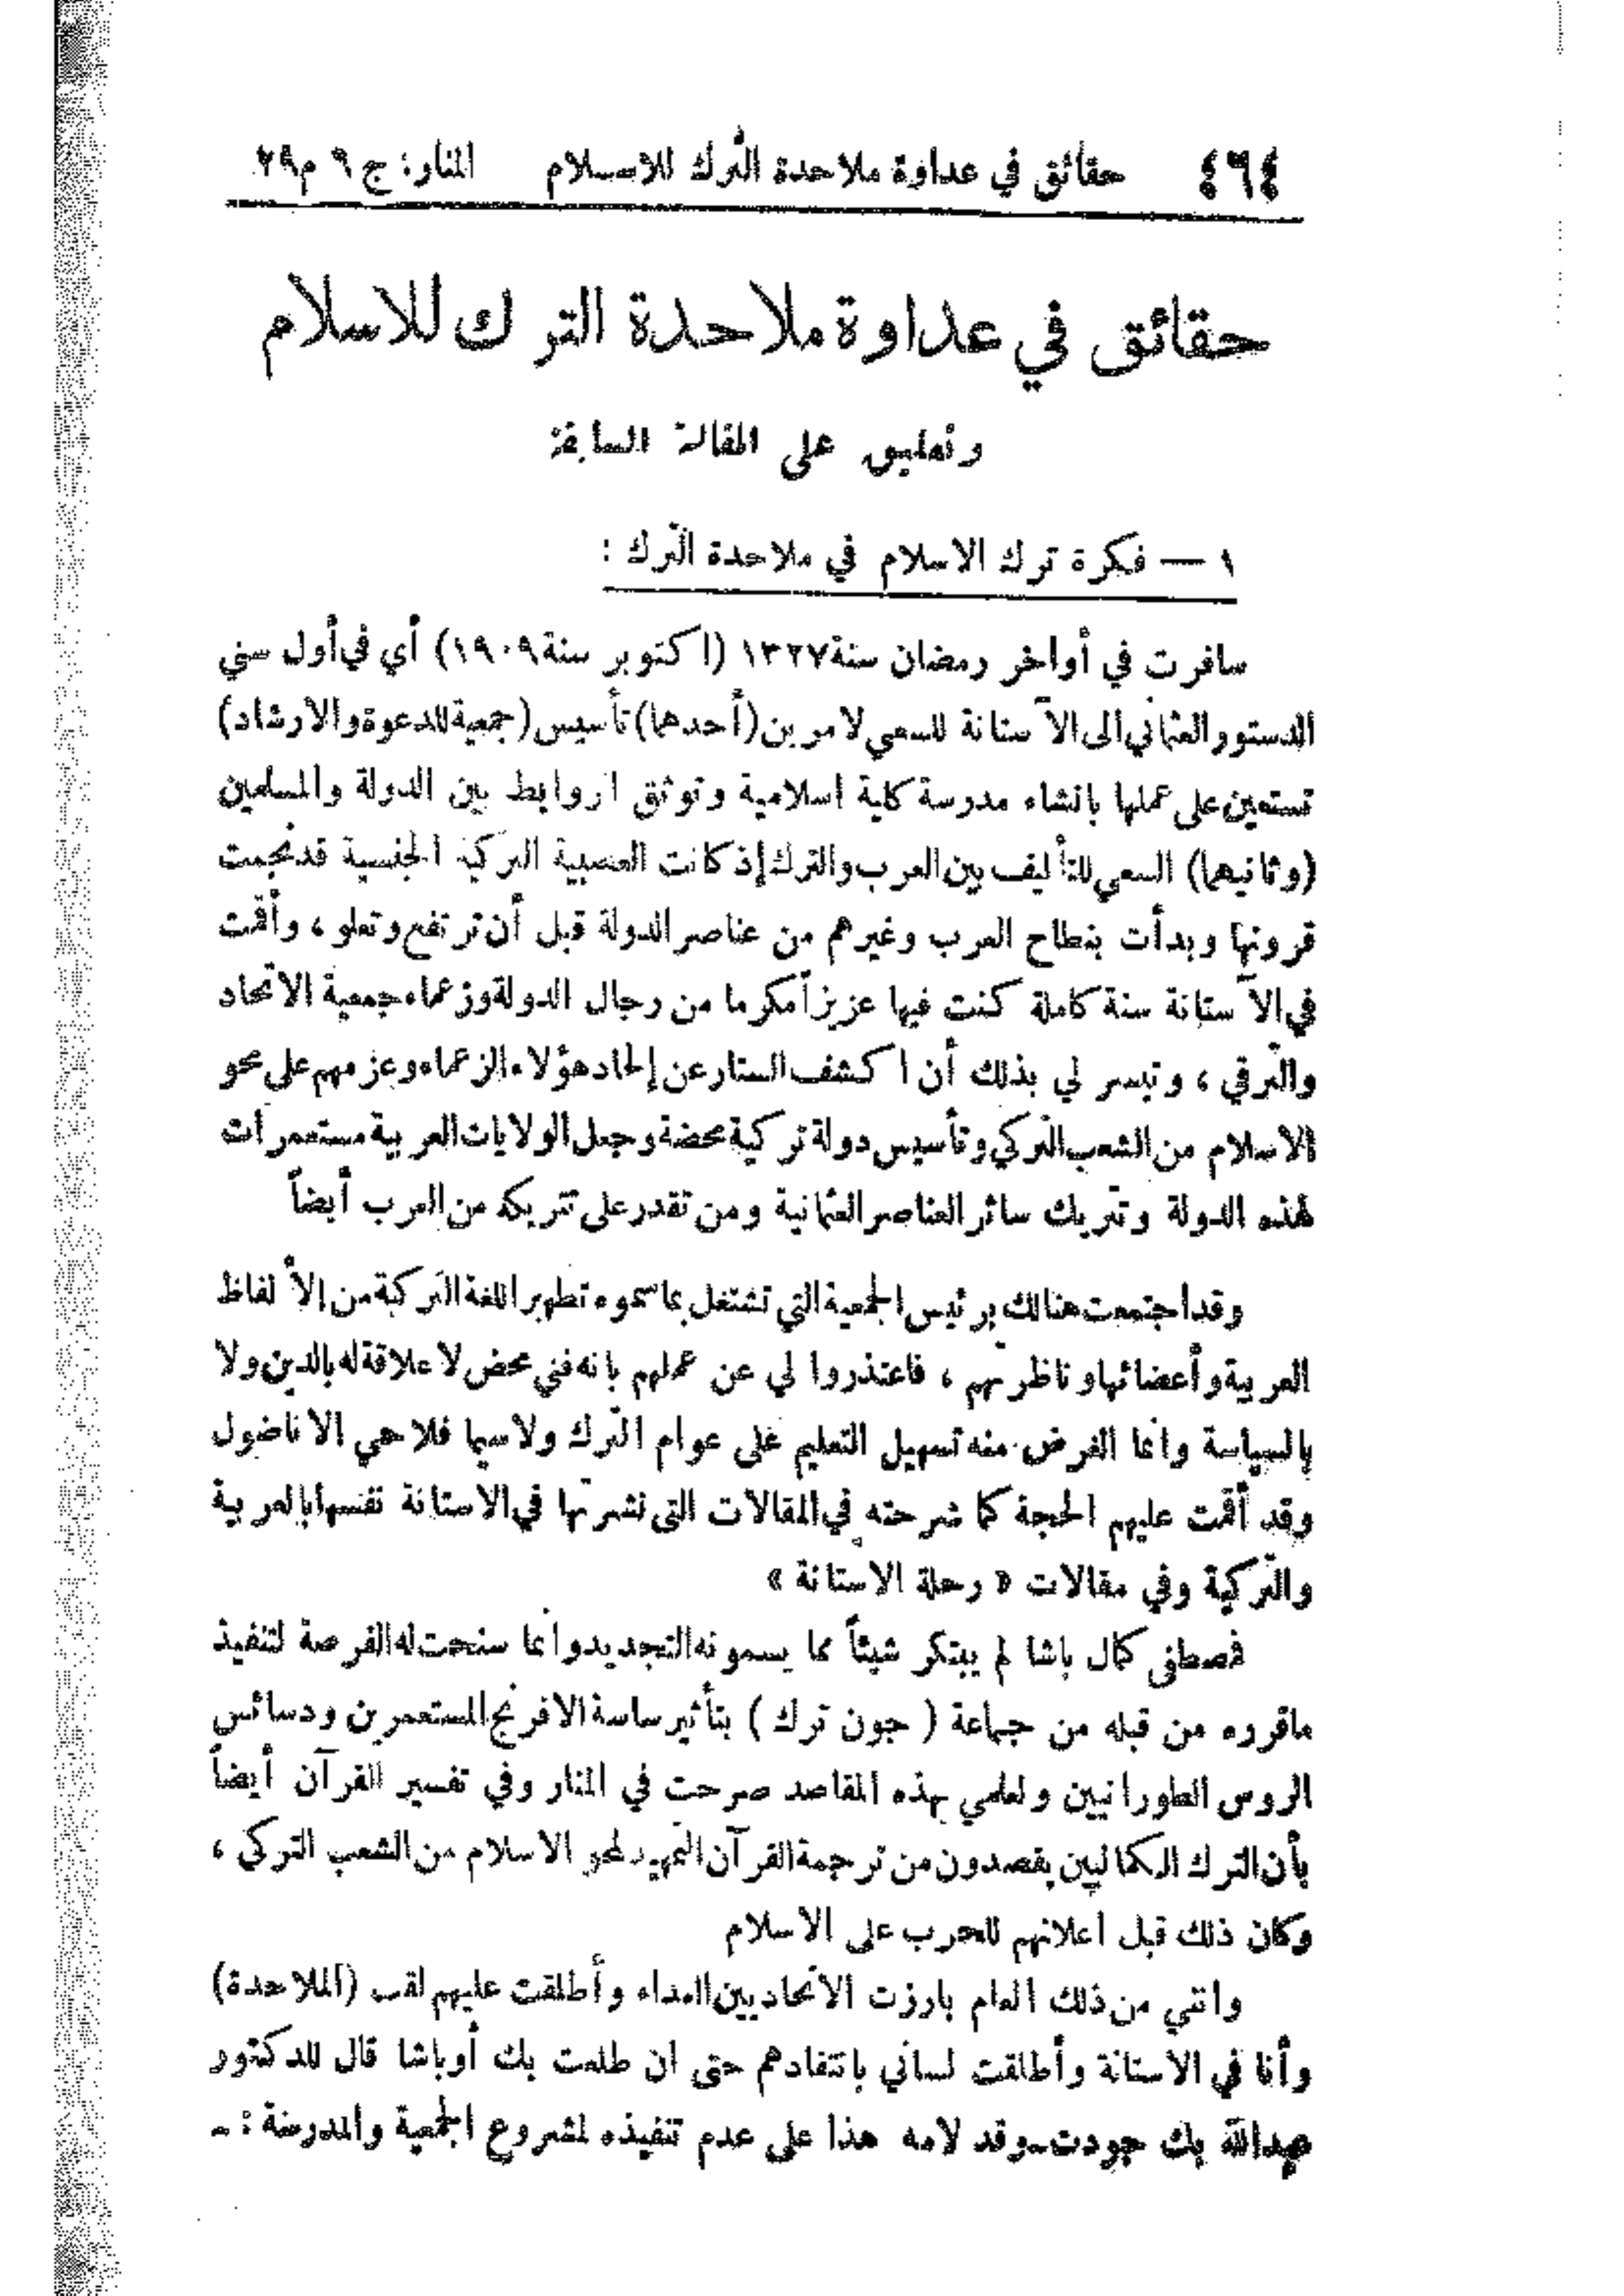 ٤٩٤ حقائق في عداوة ملاحدة الترك للاسلام المنار: ج ٩ م ٢٩
حقائق في عداوة ملاحدة الترك للاسلام
وتعليق على المقالة السابقة
١ — فكرة ترك الاسلام في ملاحدة الترك :
سافرت في أواخر رمضان سنة ١٣٢٧ (اكتوبر سنة ١٩٠٩) أي في أول سني
الدستور العثماني الى الآستانة للسعي لامرين (أحدهما) تأسيس (جمعية للدعوة والارشاد)
تستعين على عملها بانشاء مدرسة كلية اسلامية وتوثق الروابط بين الدولة والمسلمين
(وثانيهما) السعي للتأليف بين العرب والترك إذ كانت العصبية التركية الجنسية قد نجمت
قرونها وبدأت بنطاح العرب وغيرهم من عناصر الدولة قبل أن ترتفع وتعلو ، وأقمت
في الآستانة سنة كاملة كنت فيها عزيزاً مكرما من رجال الدولة وزعماء جمعية الاتحاد
والترقي ، وتيسر لي بذلك أن اكشف الستار عن إلحاد هؤلاء الزعماء وعزمهم على محو
الاسلام من الشعب التركي وتأسيس دولة تركية محضة وجعل الولايات العربية مستعمرات
لهذه الدولة وتتريك سائر العناصر العثمانية ومن تقدر على تتريكه من العرب أيضاً
وقد اجتمعت هنالك برئيس الجمعية التي تشتغل بما سموه تطهير اللغة التركية من الألفاظ
العربية وأعضائها وناظرتهم ، فاعتذروا لي عن عملهم بانه فني محض لا علاقة له بالدين ولا
بالسياسة وانما الغرض منه تسهيل التعليم على عوام الترك ولا سيما فلاحي الاناضول
وقد أقمت عليهم الحجة كما شرحته في المقالات التي نشرتها في الاستانة نفسها بالعربية
والتركية وفي مقالات « رحلة الاستانة »
فمصطفى كمال باشا لم يبتكر شيئاً مما يسمونه التجديد وانما سنحت له الفرصة لتنفيذ
ماقرره من قبله من جماعة ( جون ترك ) بتأثير ساسة الافرنج المستعمرين ودسائس
الروس الطورانيين ولعلمي بهذه المقاصد صرحت في المنار وفي تفسير القرآن أيضاً
بأن الترك الكماليين يقصدون من ترجمة القرآن التمهيد لمحو الاسلام من الشعب التركي ،
وكان ذلك قبل اعلانهم للحرب على الاسلام
وانني من ذلك العام بارزت الاتحاديين العداء وأطلقت عليهم لقب (الملاحدة)
وأنا في الاستانة وأطلقت لساني بانتقادهم حتى ان طلعت بك أو باشا قال للدكتور
عبدالله بك جودت ـ وقد لامه هذا على عدم تنفيذه لمشروع الجمعية والمدرسة : ـ